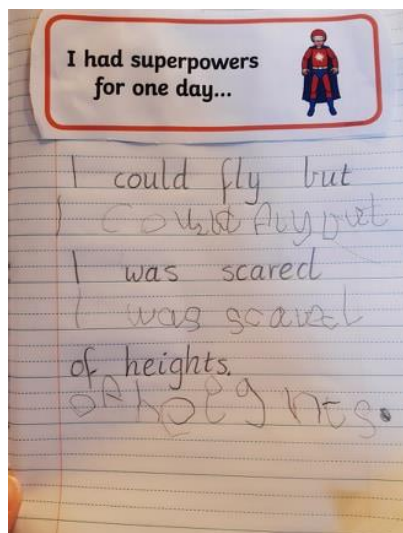 I had superpowers
for one day...
I could fly but
I could fly but
I was scared
I was scared
of heights.
of hoegnts.